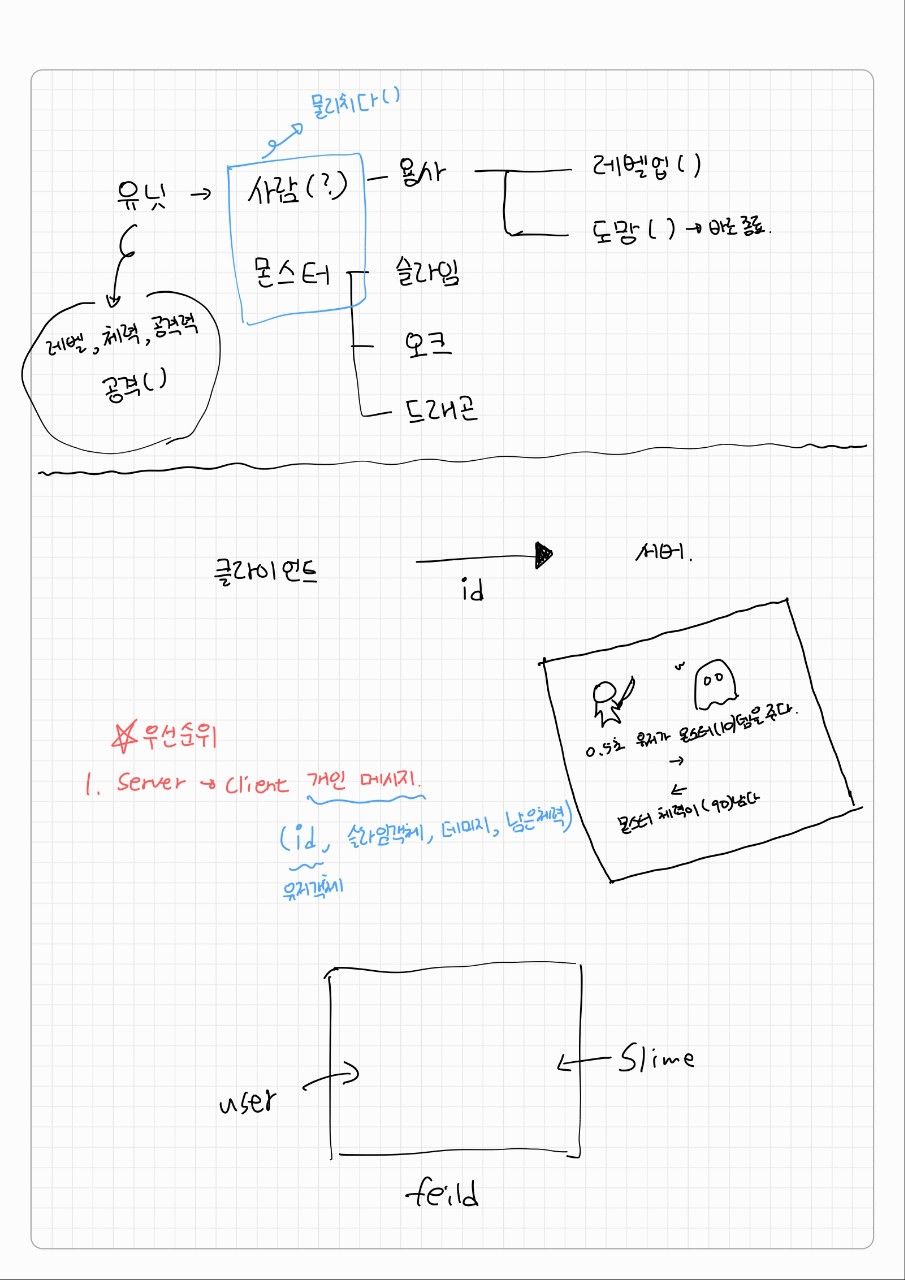 물리치다()
유닛 → 사람(?) 용사 레벨업()
도망() → 바로 종료.
몬스터 슬라임
레벨, 체력, 공격력
공격()
오크
드래곤
클라이언트 id 서버.
0.5초 유저가 몬스터(10)뎀을 준다.
→
←
몬스터 체력이 (90)남다
☆ 우선순위
1. Server → Client 개인 메시지.
(id, 슬라임객체, 데미지, 남은체력)
유저객체
user
Slime
feild